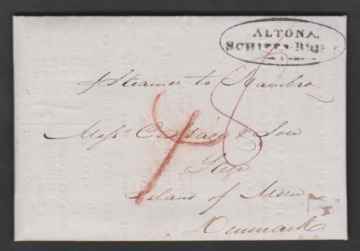 ALTONA
SCHIFFS BRIEF
Steamer to Hambro
8
Messrs & Son
Stege
Island of Moen
Denmark